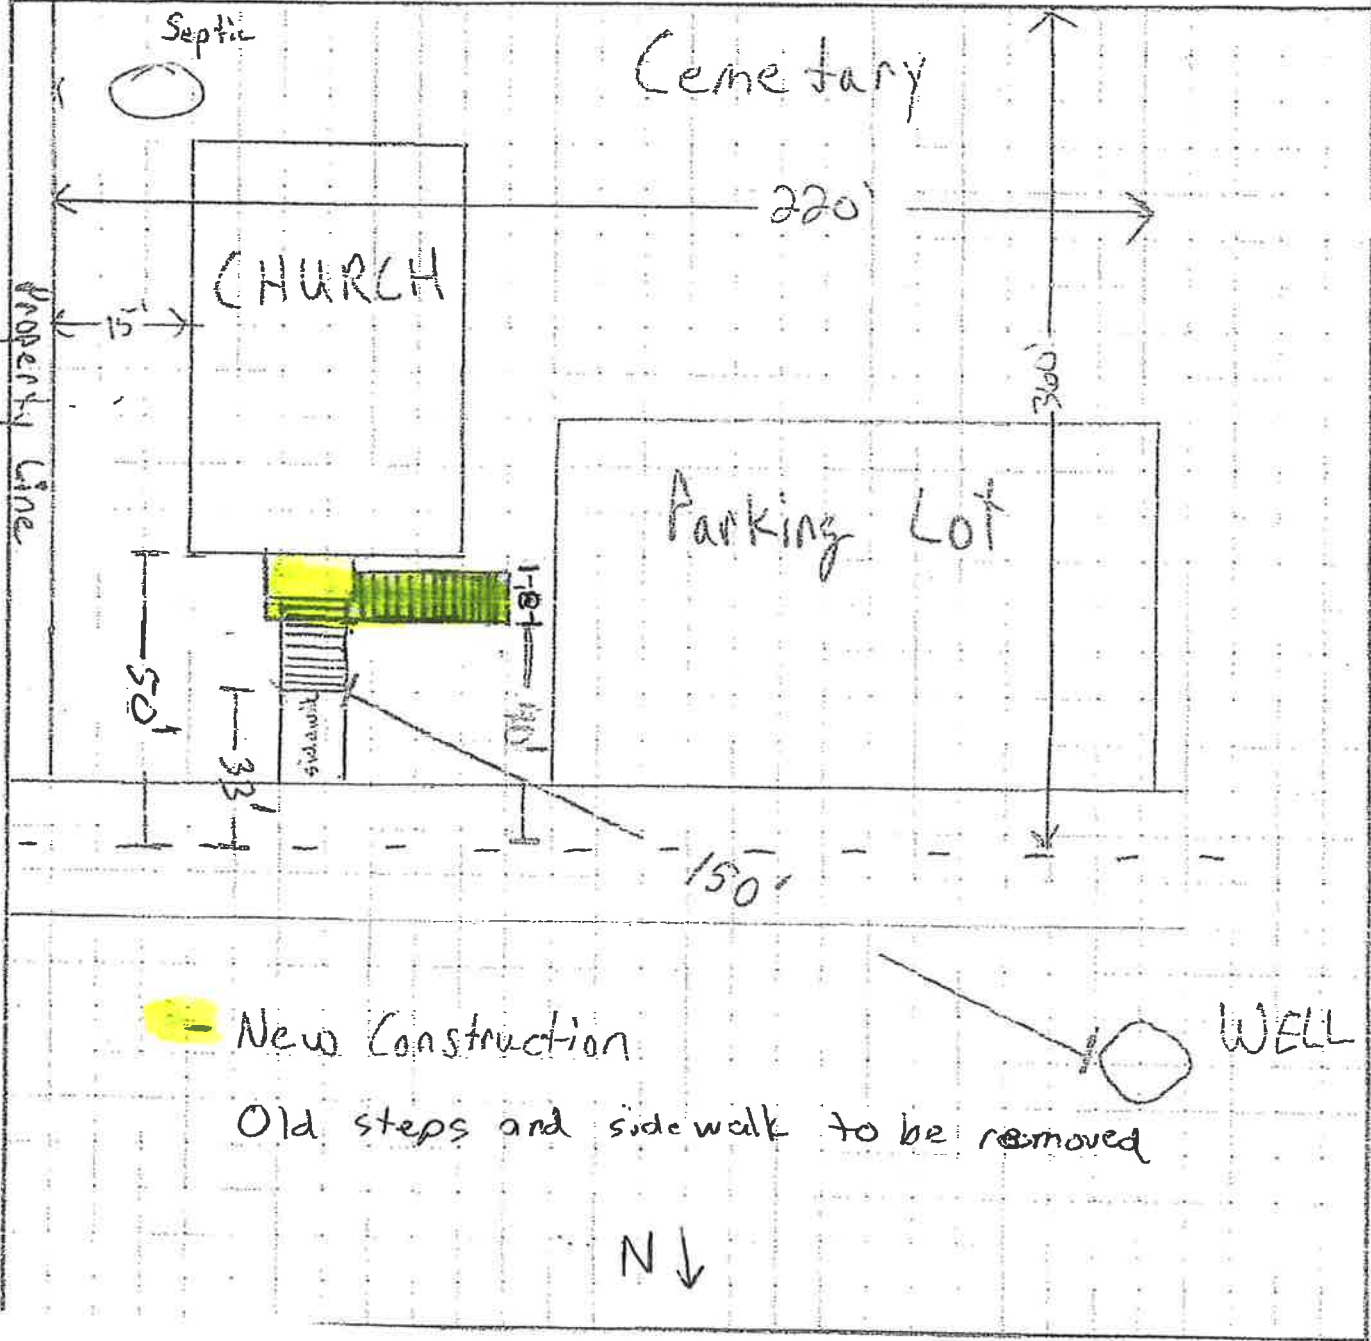 Septic
Cemetary
220'
CHURCH
15'
Property Line
360'
Parking Lot
8'
50'
sidewalk
33'
150'
WELL
- New Construction
Old steps and sidewalk to be removed
N